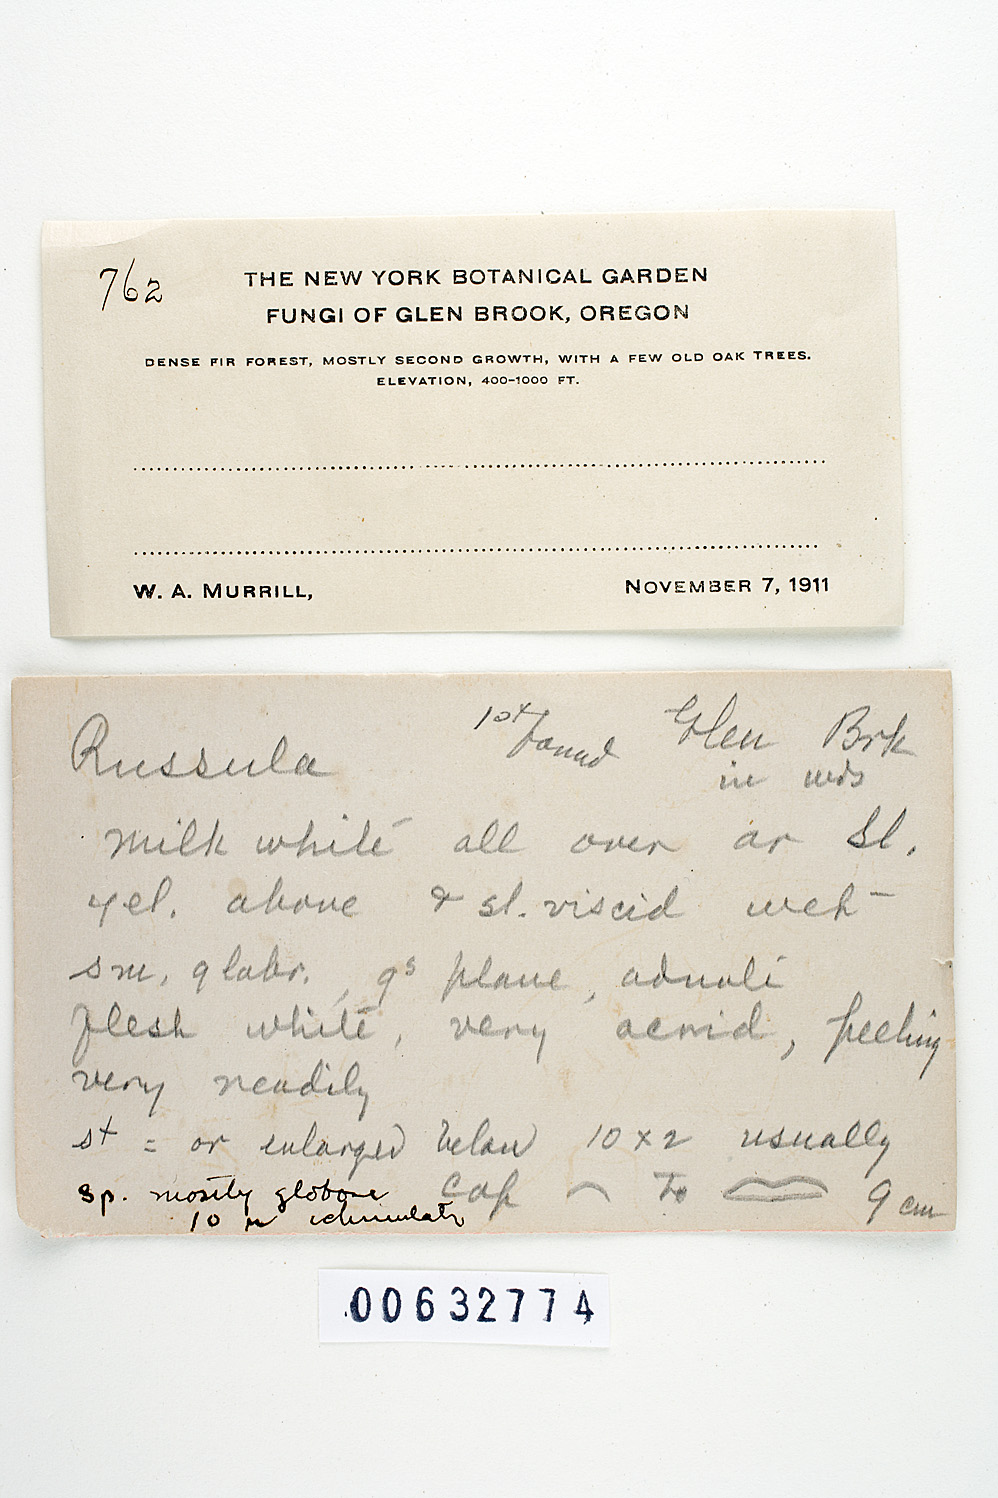 762
THE NEW YORK BOTANICAL GARDEN
FUNGI OF GLEN BROOK, OREGON
DENSE FIR FOREST, MOSTLY SECOND GROWTH, WITH A FEW OLD OAK TREES.
ELEVATION, 400-1000 FT.
W. A. MURRILL,
NOVEMBER 7, 1911
Russula 1st found Glen Brk
in wds
Milk white all over or sl.
yel. above & sl. viscid wet
sm, glabr., gs plane, adnate
flesh white, very acrid, peeling
very readily
st = or enlarged below 10 x 2 usually
Cap to 9 cm
sp. mostly globose
10 µ echinulate
00632774